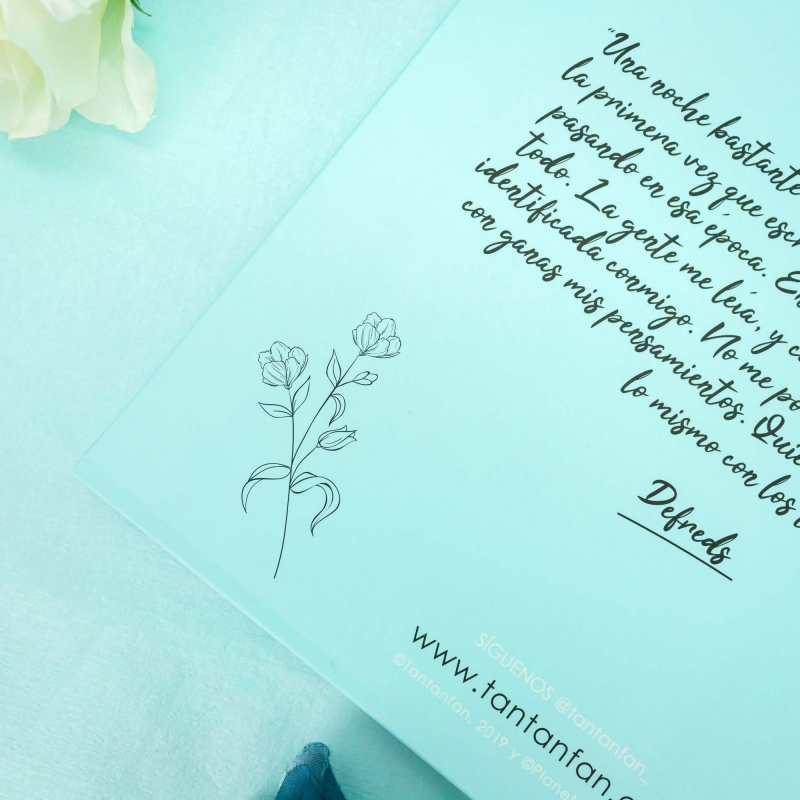 "Una noche bastante
la primera vez que escr
pasando en esa época. En
todo. La gente me leía, y c
identificada conmigo. No me po
con ganas mis pensamientos. Quie
lo mismo con los
Defreds
SÍGUENOS @tantanfan_
www.tantanfan.c
©Tantanfan, 2019 y ©Planet